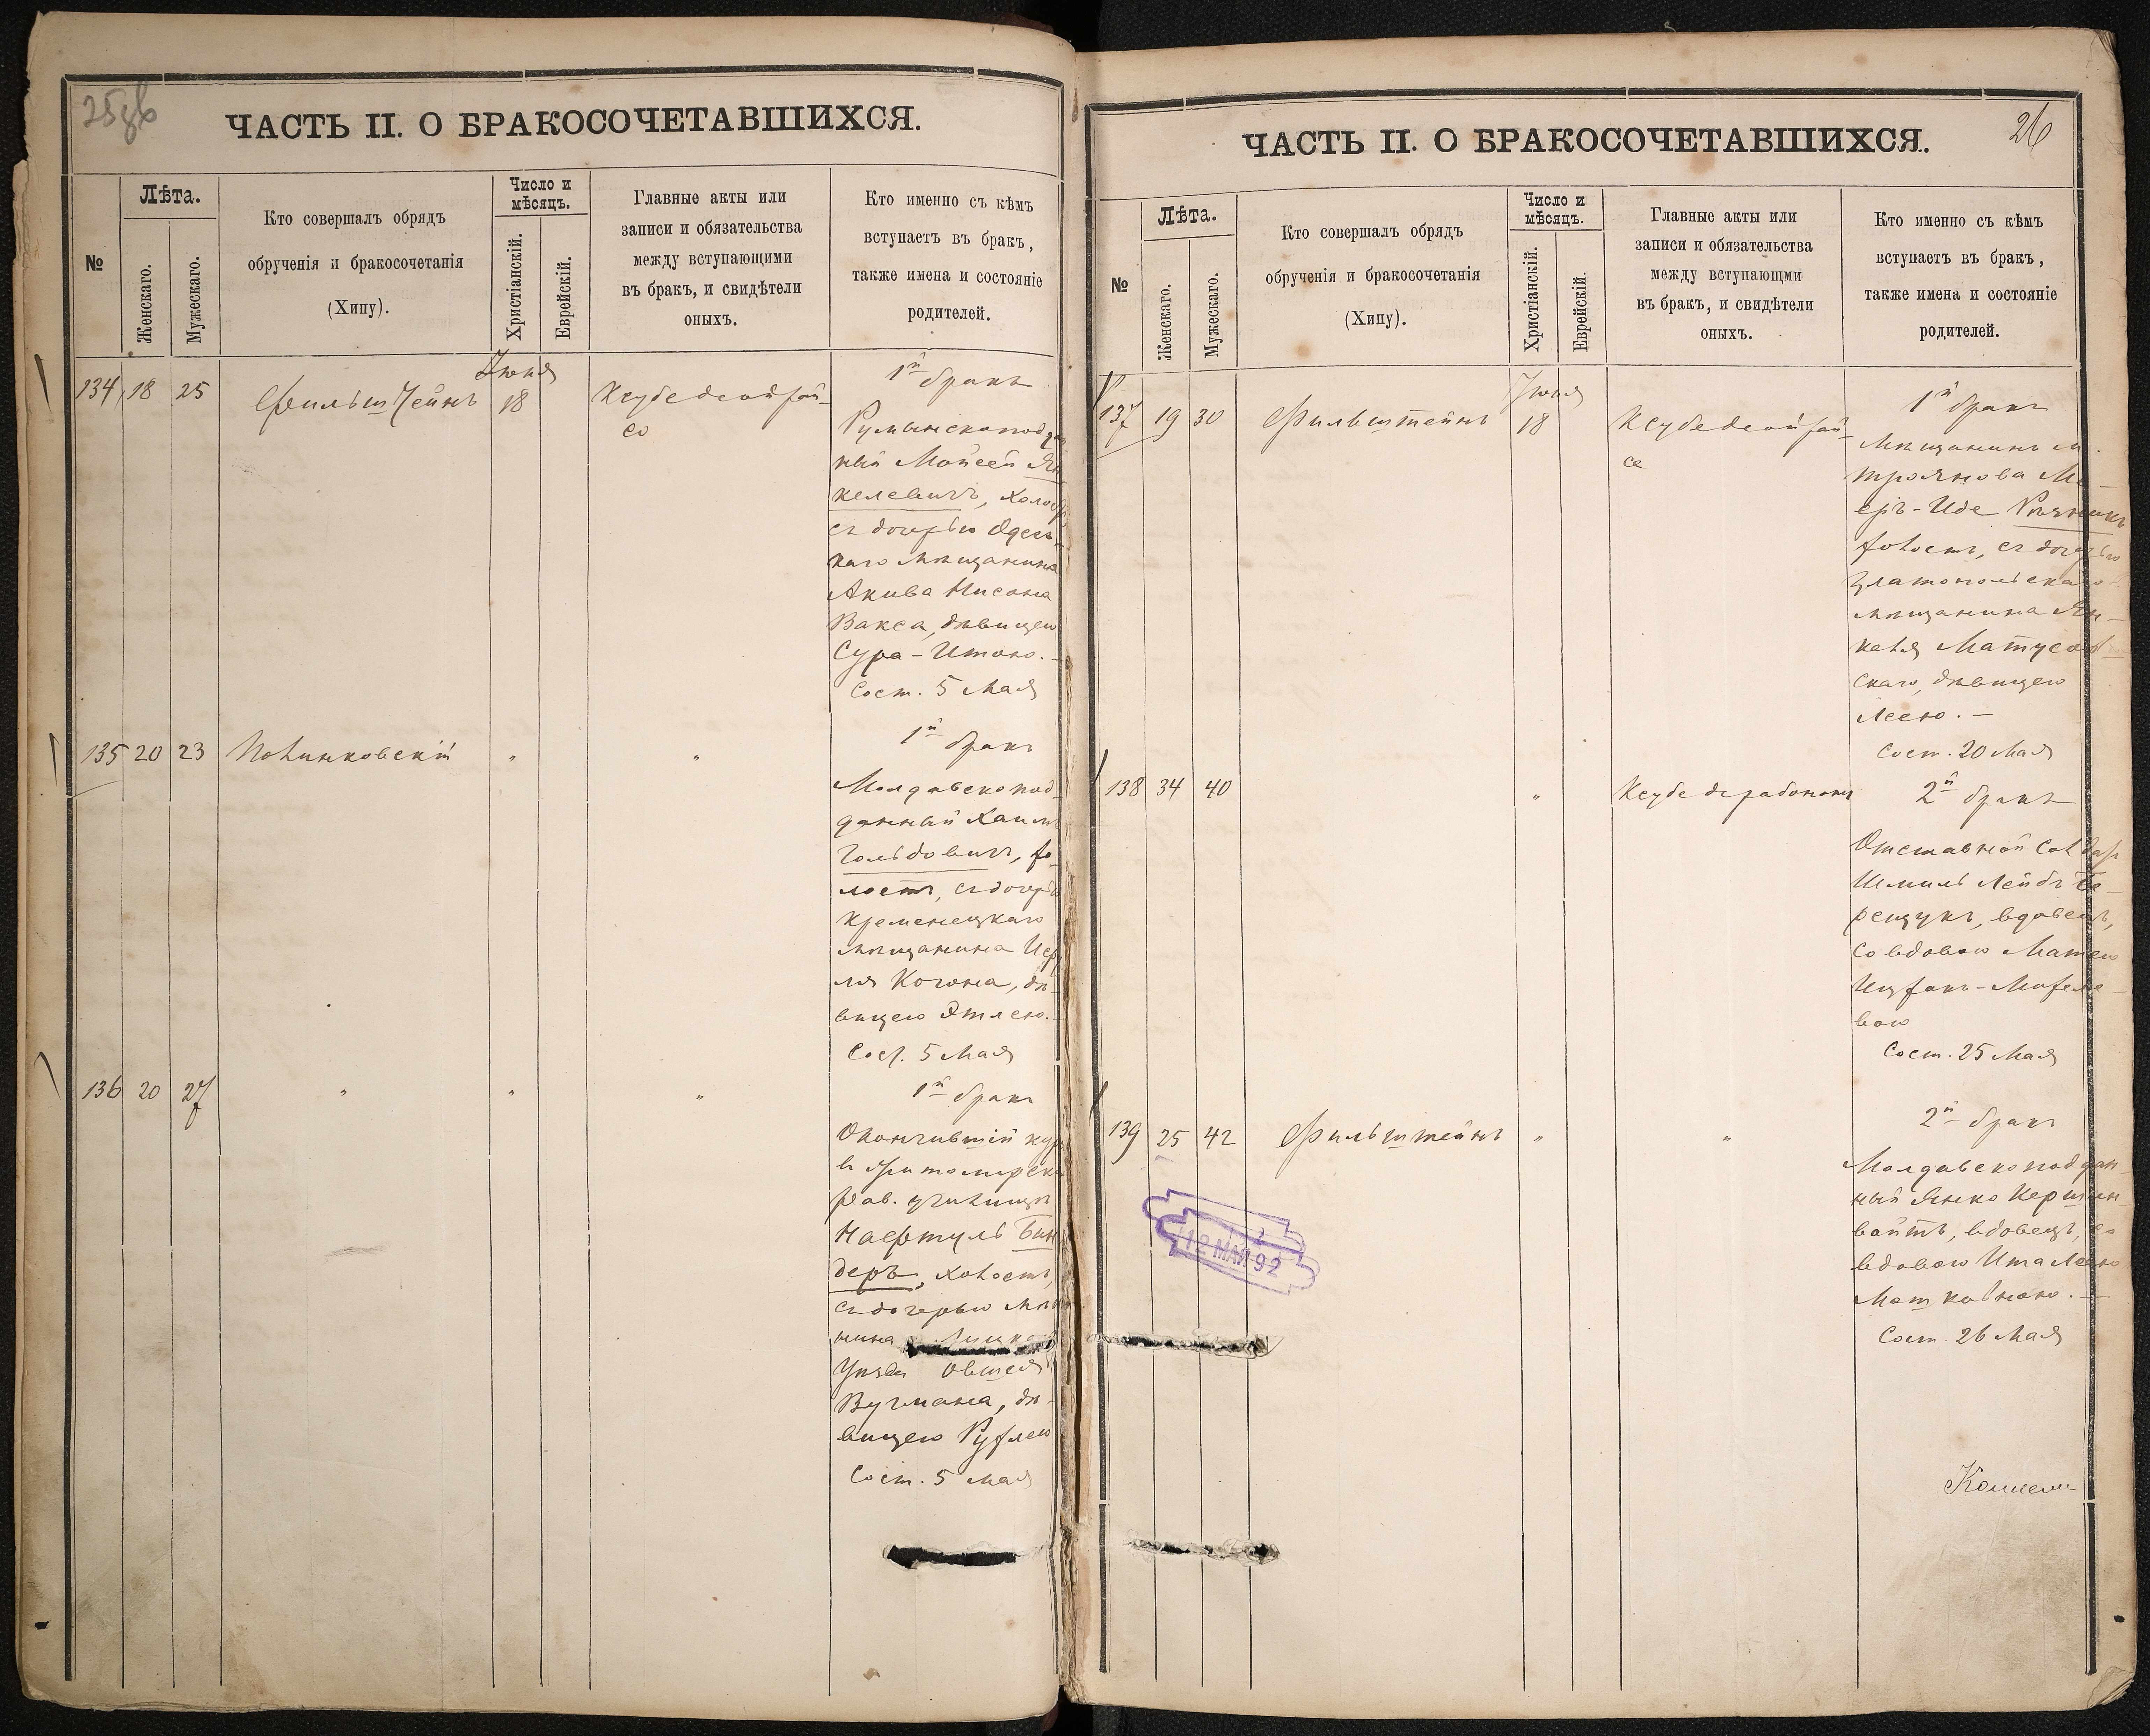 ЧАСТЬ II. О БРАКОСОЧЕТАВШИХСЯ.
№
Лѣта.
Женскаго.
Мужескаго.
Кто совершалъ обрядъ
обрученія и бракосочетанія
(Хипу).
Число и
мѣсяцъ.
Христіанскій.
Еврейскій.
Главные акты или
записи и обязательства
между вступающими
въ бракъ, и свидѣтели
оныхъ.
Кто именно съ кѣмъ
вступаетъ въ бракъ,
также имена и состояніе
родителей.
134 18 25 Фильштейнъ
Іюня
18
1й бракъ
Румынскоподдан
ный Мойсей Ян
келевичъ, холост
съ дочерью Одесь
каго мѣщанина
Акива Нисона
Вакса, дѣвицею
Сура-Итою.
Сост. 5 Мая
135 20 23 Полинковскій " "
1й бракъ
Молдавскопод
данный Хаимъ
Гольдовичъ, хо
лостъ, съ дочерью
Кременецкаго
мѣщанина Иср
ля Когона, дѣ
вицею Этлею.
Сост. 5 Мая
136 20 27 " " "
1й бракъ
Окончившій кур
в Житомирско
Рав. училищѣ
Нафтуль Бин
деръ, холостъ,
съ дочерью мѣщ
нина
Уѣзда Овшея
Вугмана, дѣ
вицею Рухлею
Сост. 5 Мая
ЧАСТЬ II. О БРАКОСОЧЕТАВШИХСЯ.
26
№
Лѣта.
Женскаго.
Мужескаго.
Кто совершалъ обрядъ
обрученія и бракосочетанія
(Хипу).
Число и
мѣсяцъ.
Христіанскій.
Еврейскій.
Главные акты или
записи и обязательства
между вступающми
въ бракъ, и свидѣтели
оныхъ.
Кто именно съ кѣмъ
вступаетъ въ бракъ,
также имена и состояніе
родителей.
137 19 30 Фильштейнъ
Іюня
18
1й бракъ
Мѣщанинъ м.
Троянова Ме
еръ-Иде
холостъ, съ дочерью
Златопольскаго
мѣщанина Ян
келя Матусов
скаго, дѣвицею
Леею.
Сост. 20 Мая
138 34 40 " Ксубе дерабонон
2й бракъ
Отставной Солдатъ
Шмиль Лейбъ Бе
рещукъ, вдовецъ,
со вдовою Матею
Ицхокъ-Михеле
вою
Сост. 25 Мая
139 25 42 Фильштейнъ " "
2й бракъ
Молдавскоподдан
ный Янко Кершен
войтъ, вдовецъ, со
вдовою Ита Леею
Маш
Сост. 26 Мая
12 МАЯ 92